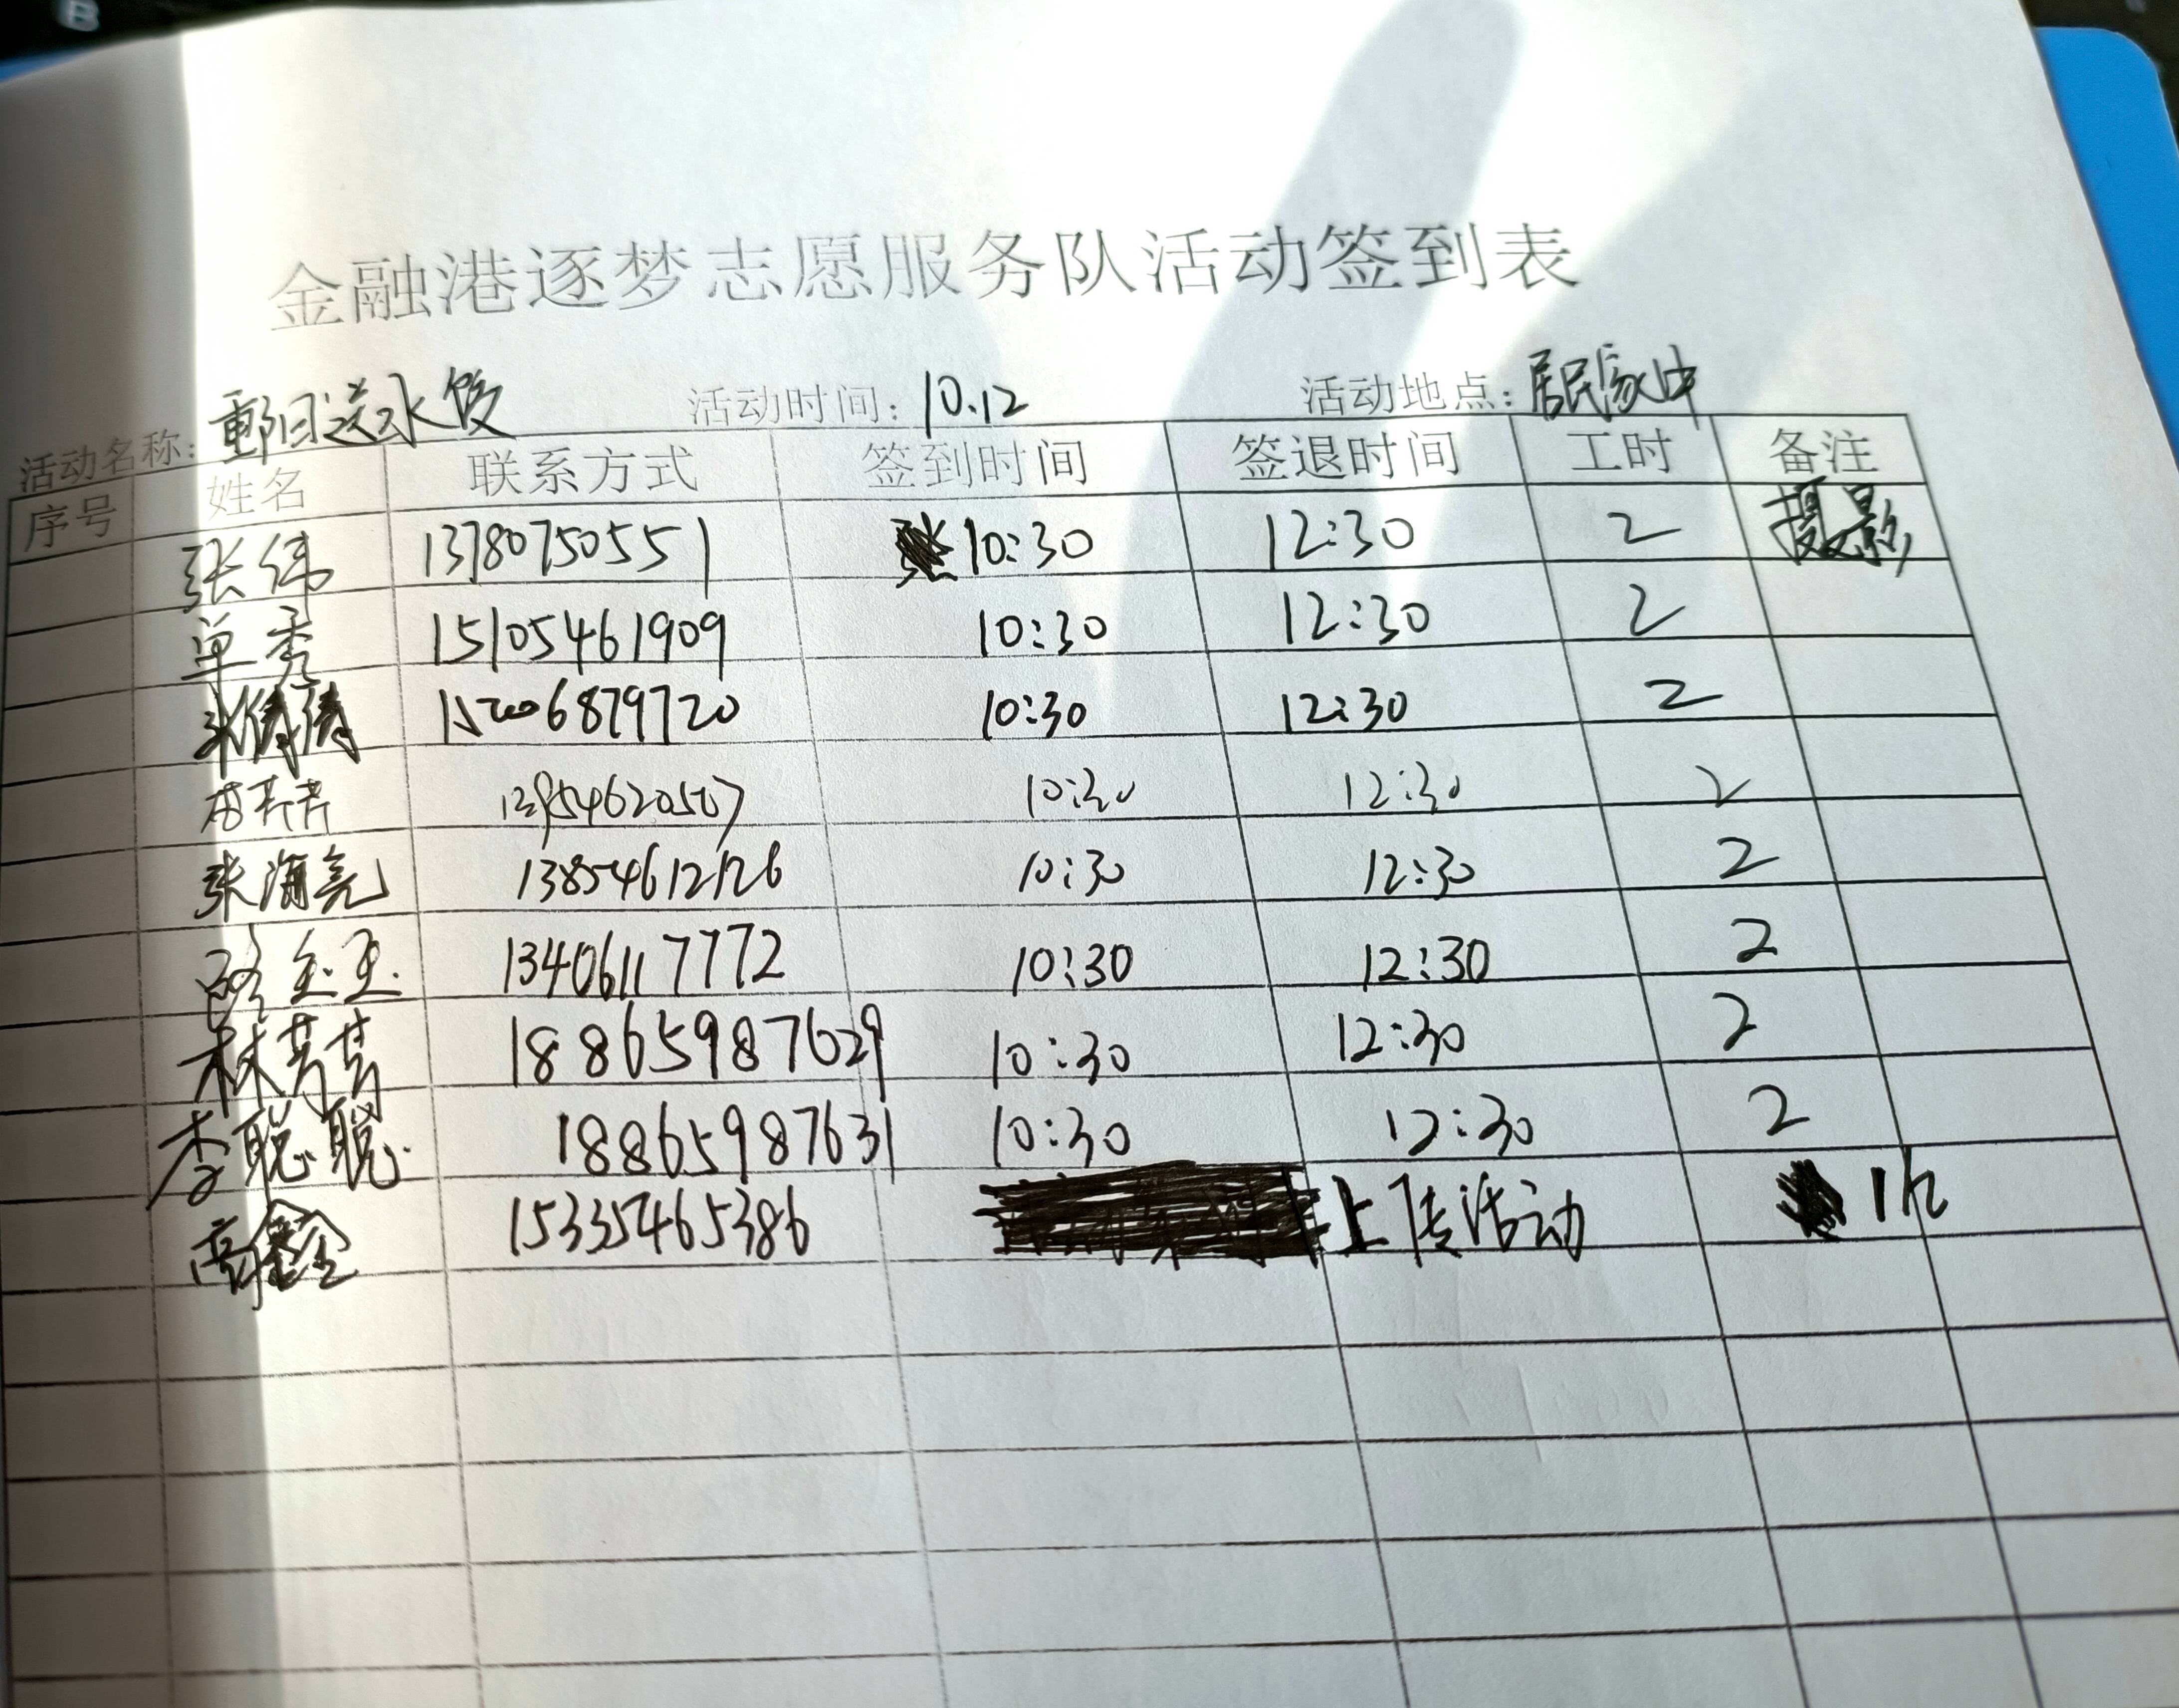 金融港逐梦志愿服务队活动签到表
活动名称: 重阳送水饺 活动时间: 10.12 活动地点: 居民家中
序号 姓名 联系方式 签到时间 签退时间 工时 备注
张伟 13780750551 10:30 12:30 2 摄影
单秀 15105461909 10:30 12:30 2
倩倩 15206879720 10:30 12:30 2
芹芹 13954620507 10:30 12:30 2
张海亮 13854612126 10:30 12:30 2
路玉玉 13406117772 10:30 12:30 2
林芸芸 18865987629 10:30 12:30 2
李聪聪 18865987631 10:30 12:30 2
高鑫 15335465386 上传活动 1h